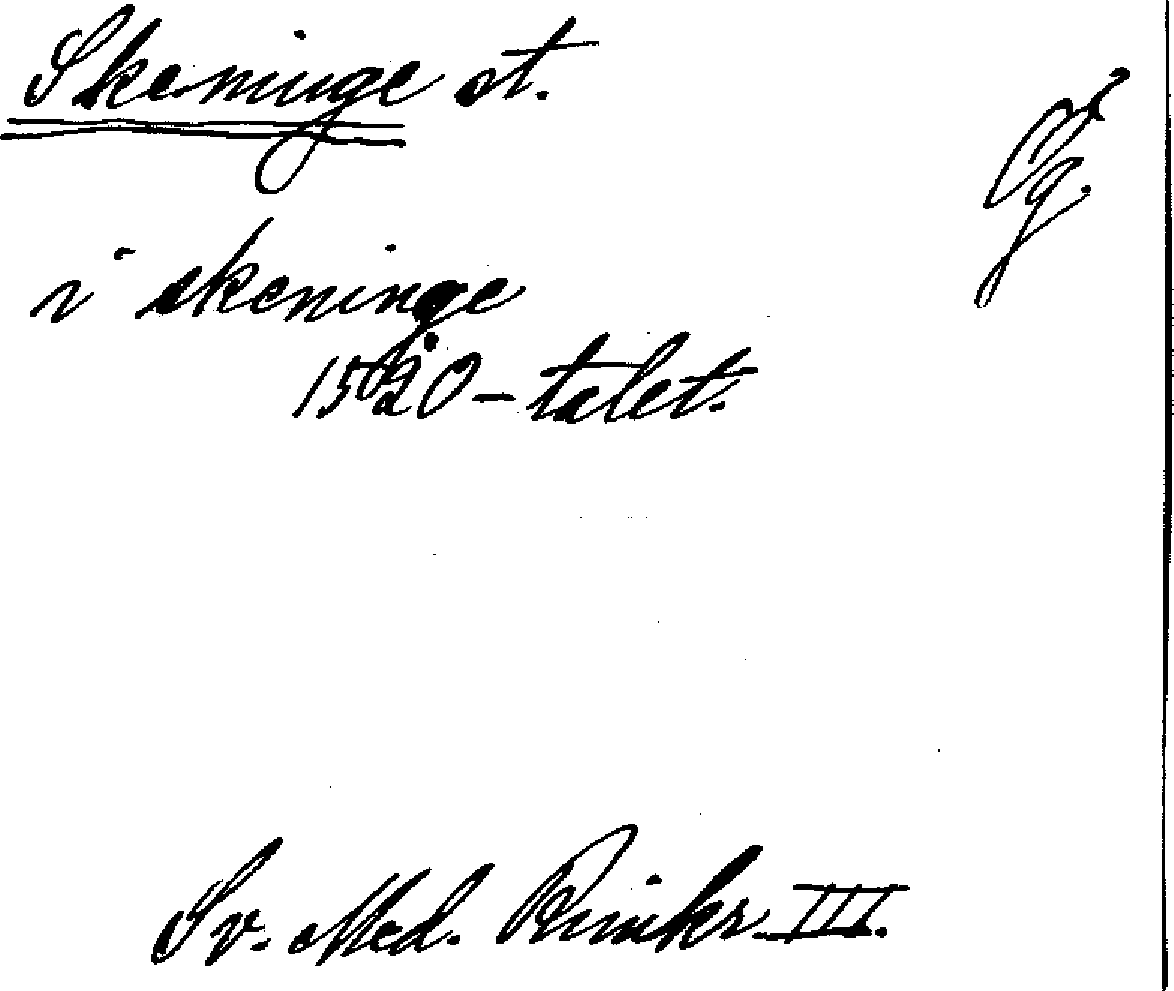 Skeninge st.
Ög.
i skeninge
1520-talet.
Sv. Med. Rimkr. III.